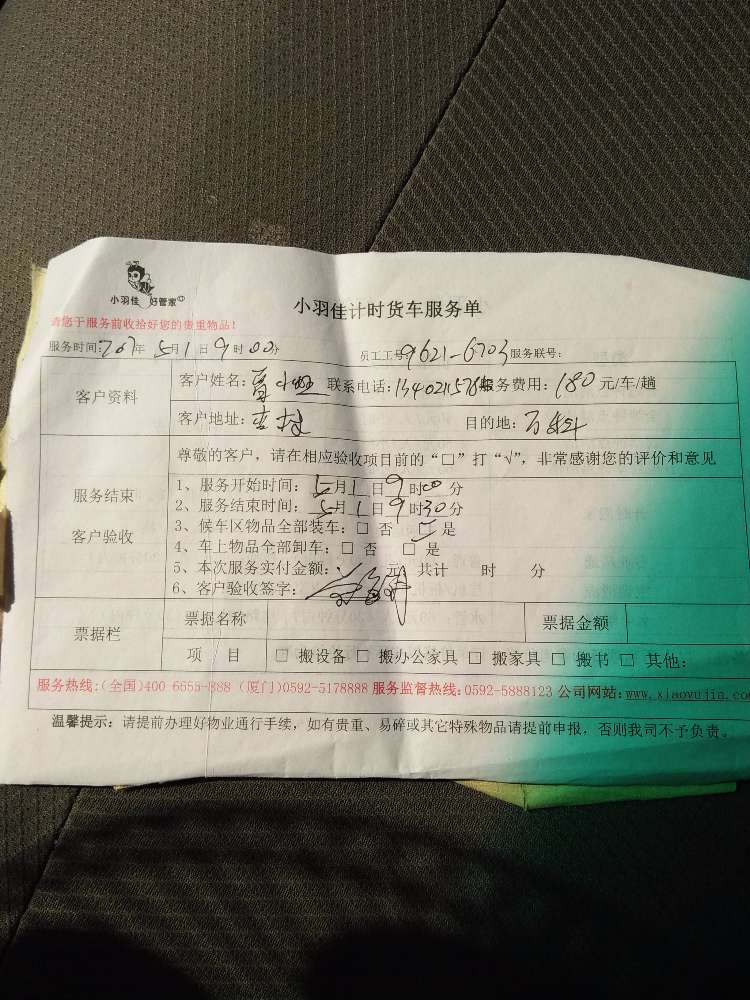 小羽佳 好管家
小羽佳计时货车服务单
请您于服务前收给好您的贵重物品！
服务时间: 年 5月1日9时00分 员工工号9621-6703服务联号:
客户资料
客户姓名: 联系电话: 服务费用: 180 元/车/趟
客户地址: 目的地:
服务结束
客户验收
尊敬的客户，请在相应验收项目前的“□”打“√”，非常感谢您的评价和意见
1、服务开始时间: 5月1日9时00分
2、服务结束时间: 5月1日9时30分
3、候车区物品全部装车: □ 否 □ 是
4、车上物品全部卸车: □ 否 □ 是
5、本次服务实付金额: 元 共计 时 分
6、客户验收签字:
票据栏
票据名称 票据金额
项 目 □ 搬设备 □ 搬办公家具 □ 搬家具 □ 搬书 □ 其他:
服务热线:(全国)400-6655-888 (厦门)0592-5178888 服务监督热线:0592-5888123 公司网站:www.xiaoyujia.co
温馨提示: 请提前办理好物业通行手续，如有贵重、易碎或其它特殊物品请提前申报，否则我司不予负责。